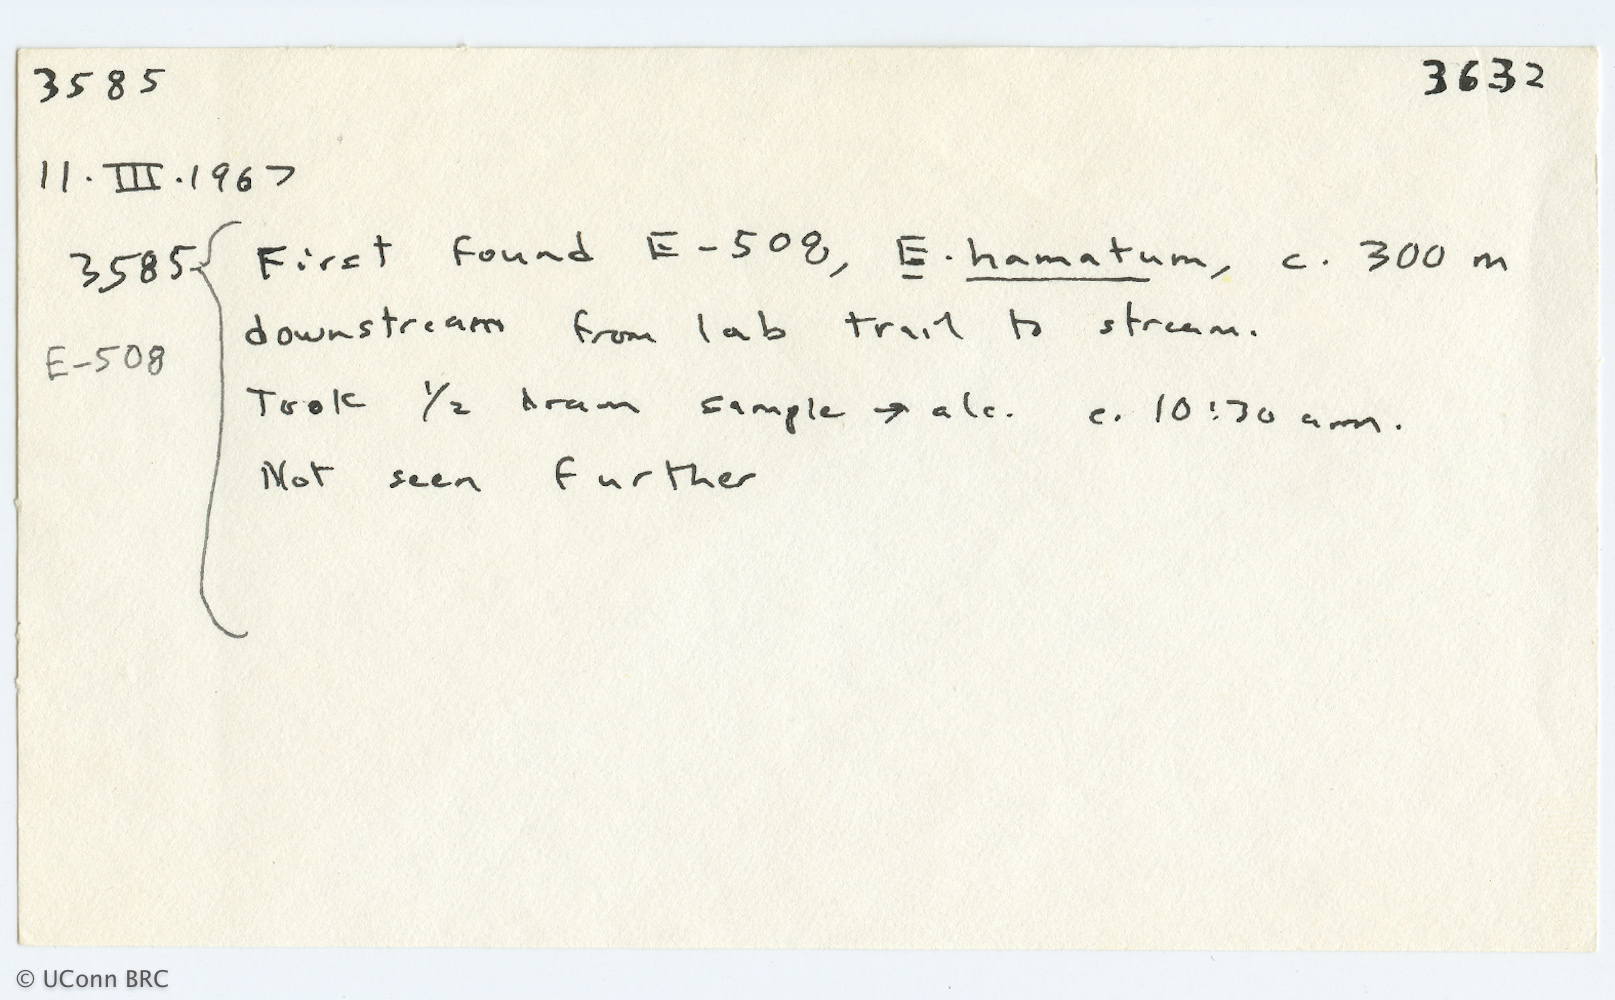 3585 3632
11.III.1967
3585 First found E-508, E. hamatum, c. 300 m
downstream from lab trail to stream.
E-508
Took 1/2 dram sample → alc. c. 10:30 am.
Not seen further
© UConn BRC